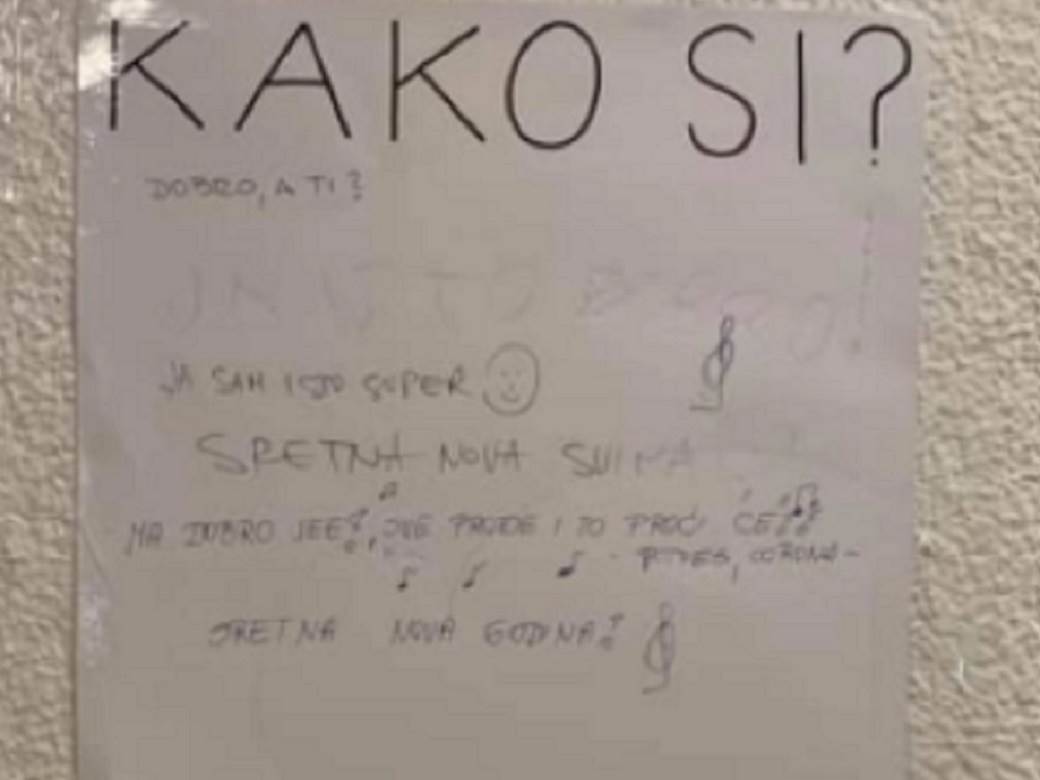 KAKO SI?
DOBRO, A TI?
JA ISTO DOBRO!
JA SAM ISTO SUPER
SRETNA NOVA SVIMA
MA DOBRO JEE!, SVE PROĐE I TO PROĆI ĆE!!
- POTRES, CORONA -
SRETNA NOVA GODINA!